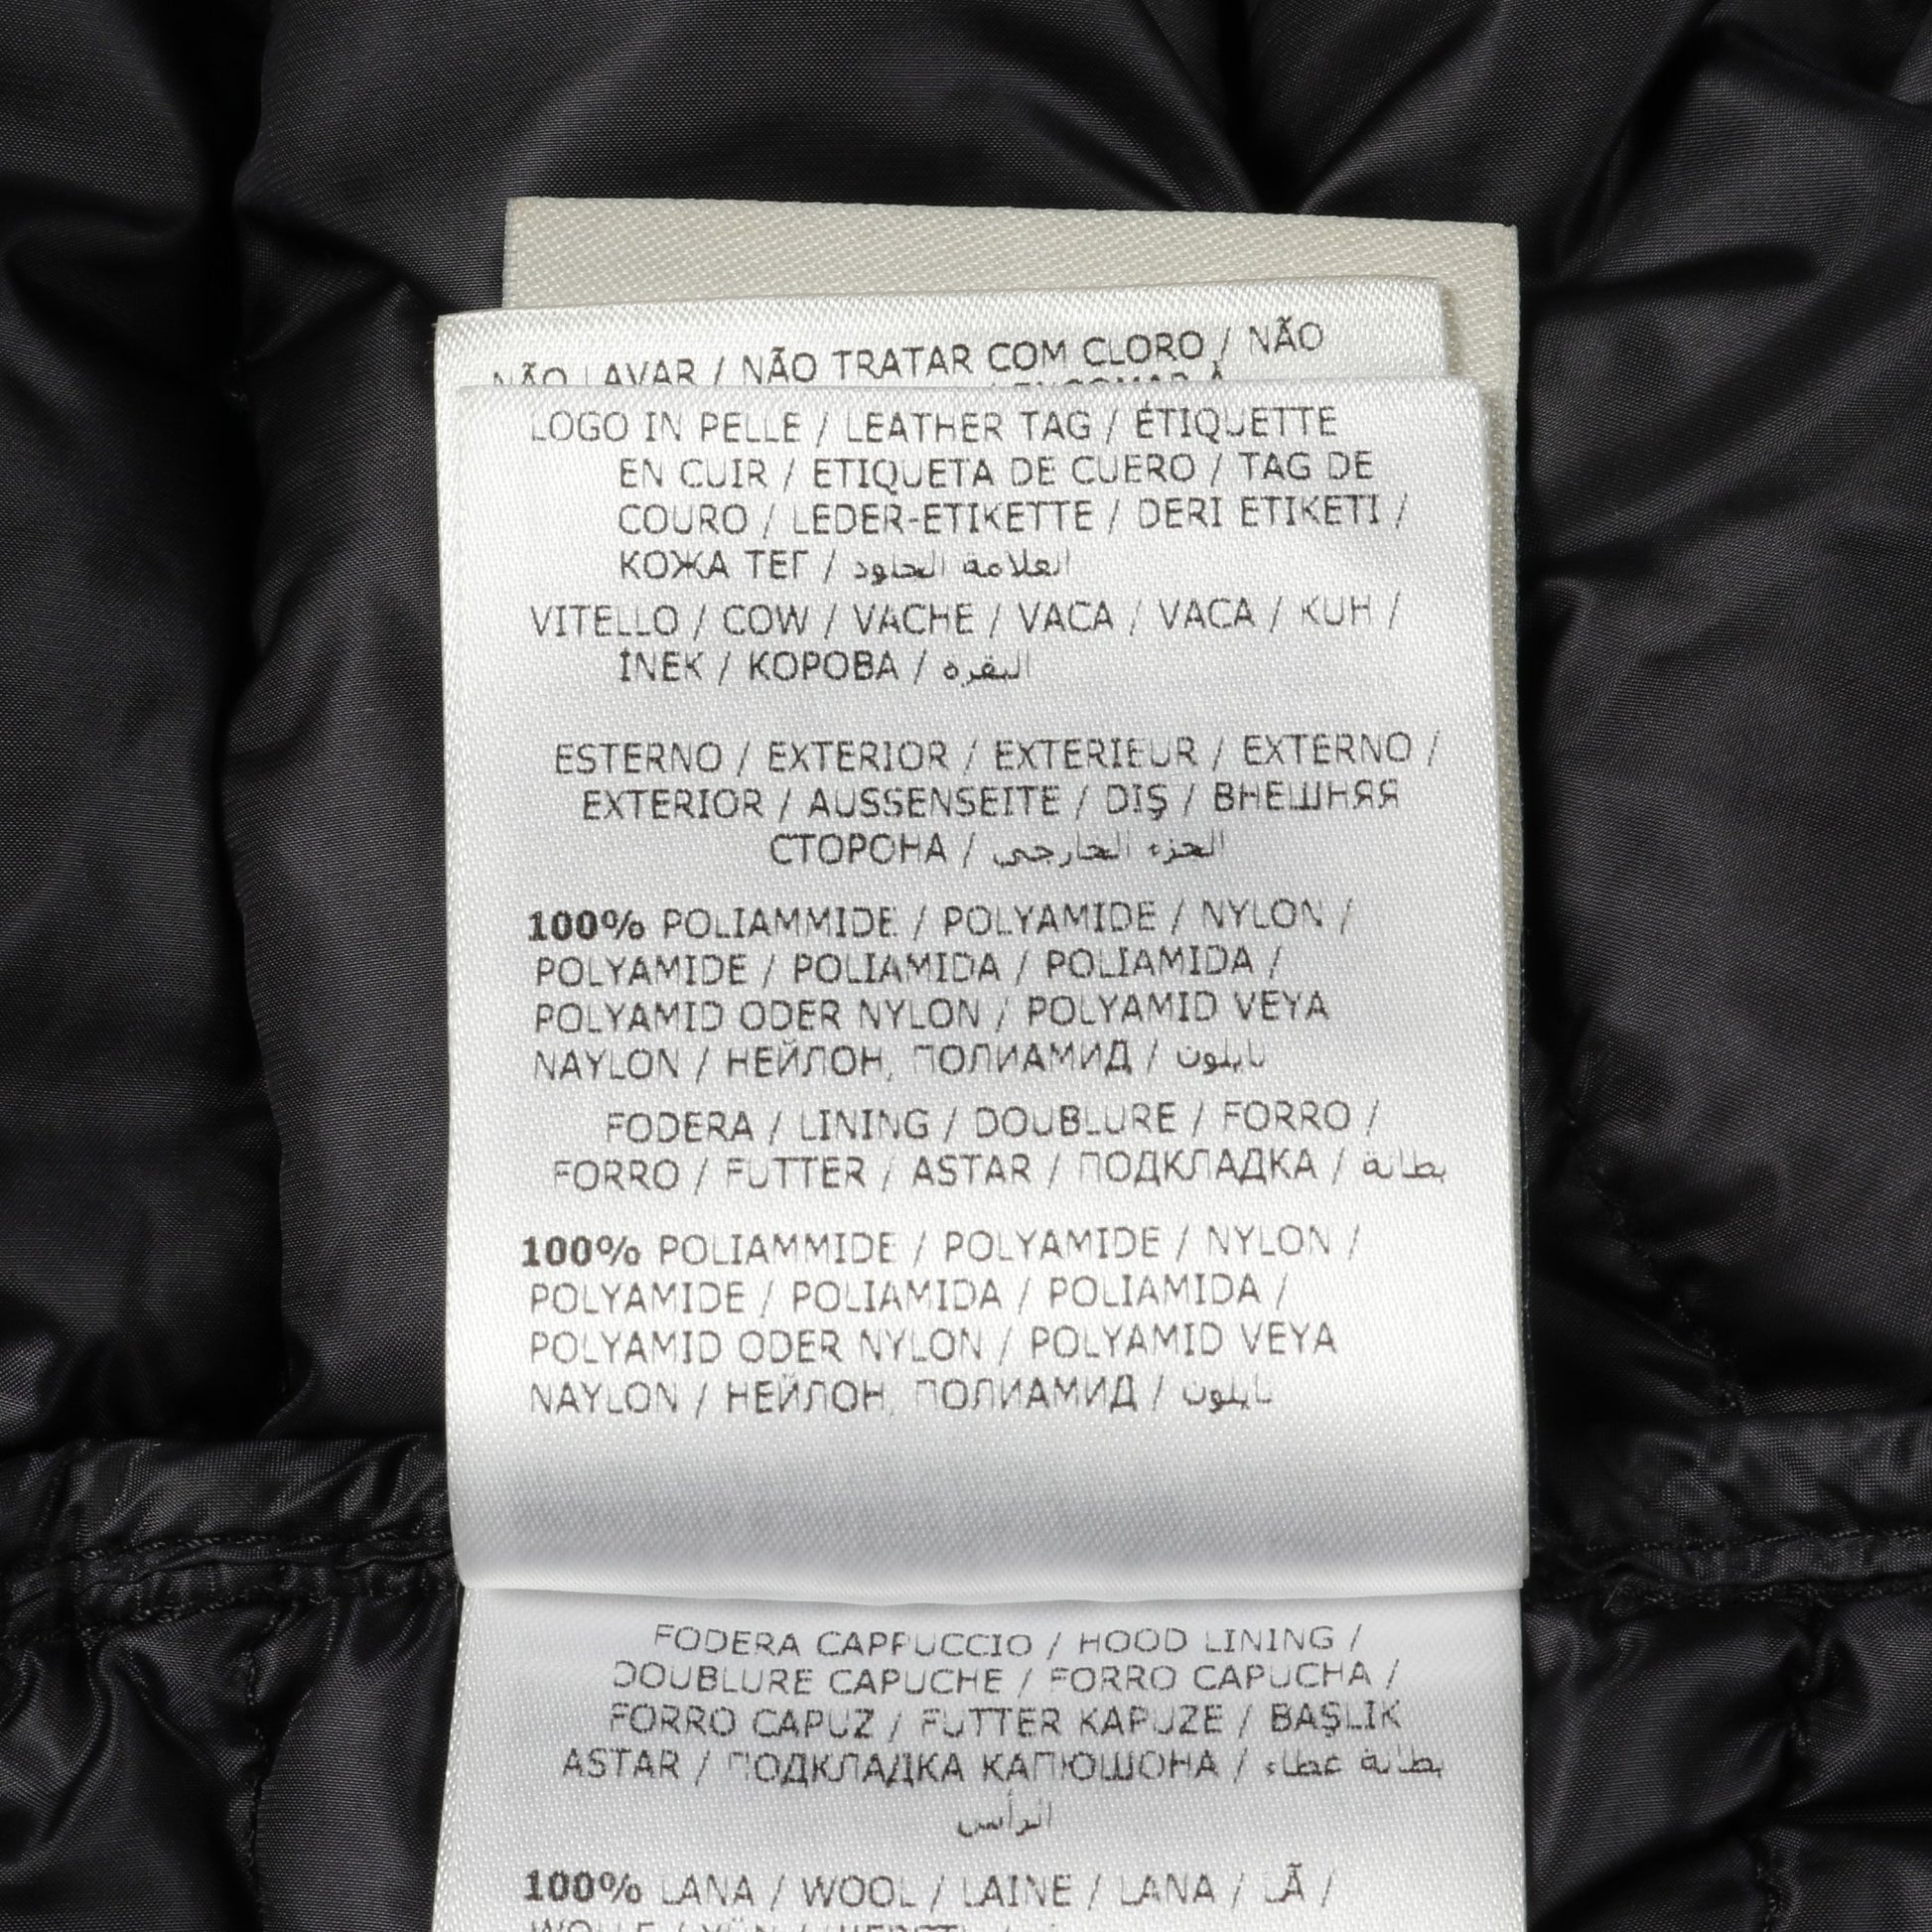 NÃO LAVAR / NÃO TRATAR COM CLORO / NÃO
LOGO IN PELLE / LEATHER TAG / ÉTIQUETTE
EN CUIR / ETIQUETA DE CUERO / TAG DE
COURO / LEDER-ETIKETTE / DERI ETIKETI /
КОЖА ТЕГ / العلامة الجلود
VITELLO / COW / VACHE / VACA / VACA / KUH /
İNEK / КОРОВА / البقره
ESTERNO / EXTERIOR / EXTERIEUR / EXTERNO /
EXTERIOR / AUSSENSEITE / DIŞ / ВНЕШНЯЯ
СТОРОНА / الجزء الخارجي
100% POLIAMMIDE / POLYAMIDE / NYLON /
POLYAMIDE / POLIAMIDA / POLIAMIDA /
POLYAMID ODER NYLON / POLYAMID VEYA
NAYLON / НЕЙЛОН, ПОЛИАМИД / نايلون
FODERA / LINING / DOUBLURE / FORRO /
FORRO / FUTTER / ASTAR / ПОДКЛАДКА / بطانة
100% POLIAMMIDE / POLYAMIDE / NYLON /
POLYAMIDE / POLIAMIDA / POLIAMIDA /
POLYAMID ODER NYLON / POLYAMID VEYA
NAYLON / НЕЙЛОН, ПОЛИАМИД / نايلون
FODERA CAPPUCCIO / HOOD LINING /
DOUBLURE CAPUCHE / FORRO CAPUCHA /
FORRO CAPUZ / FUTTER KAPUZE / BAŞLIK
ASTAR / ПОДКЛАДКА КАПЮШОНА / بطانة غطاء
الرأس
100% LANA / WOOL / LAINE / LANA / LÃ /